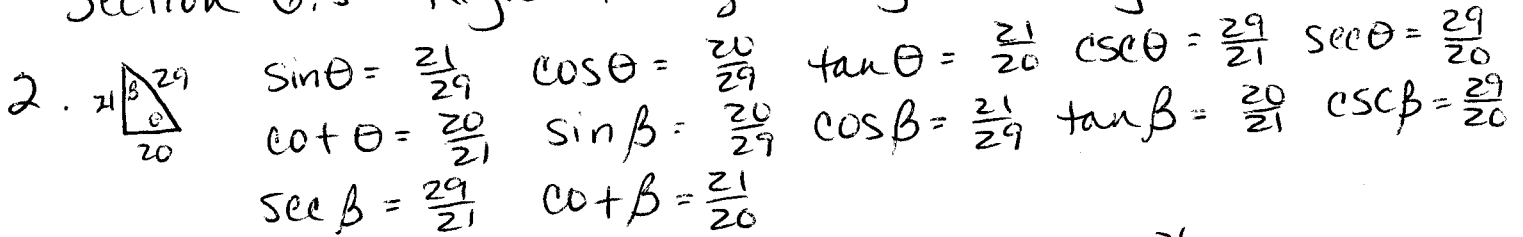 2. 21 β 29 θ 20 sinθ = 21/29 cosθ = 20/29 tanθ = 21/20 cscθ = 29/21 secθ = 29/20
cotθ = 20/21 sinβ = 20/29 cosβ = 21/29 tanβ = 20/21 cscβ = 29/20
secβ = 29/21 cotβ = 21/20